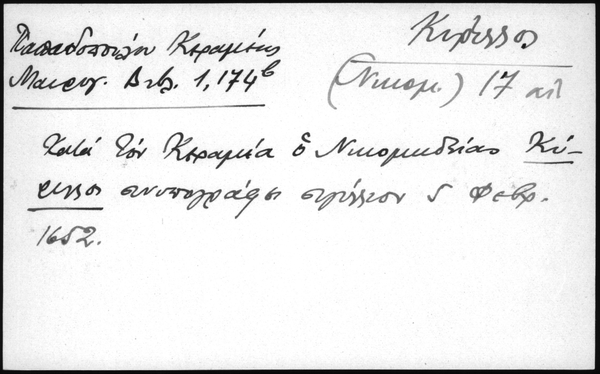 Παπαδοπούλου Κεραμέως
Μαυρογ. Βιβ. 1, 174β
Κύριλλος
(Νικομ.) 17 αἰ
Κατά τόν Κεραμέα ὁ Νικομηδείας Κύ-
ριλλος συνυπογράφει σιγίλλιον 5 Φεβρ.
1652.